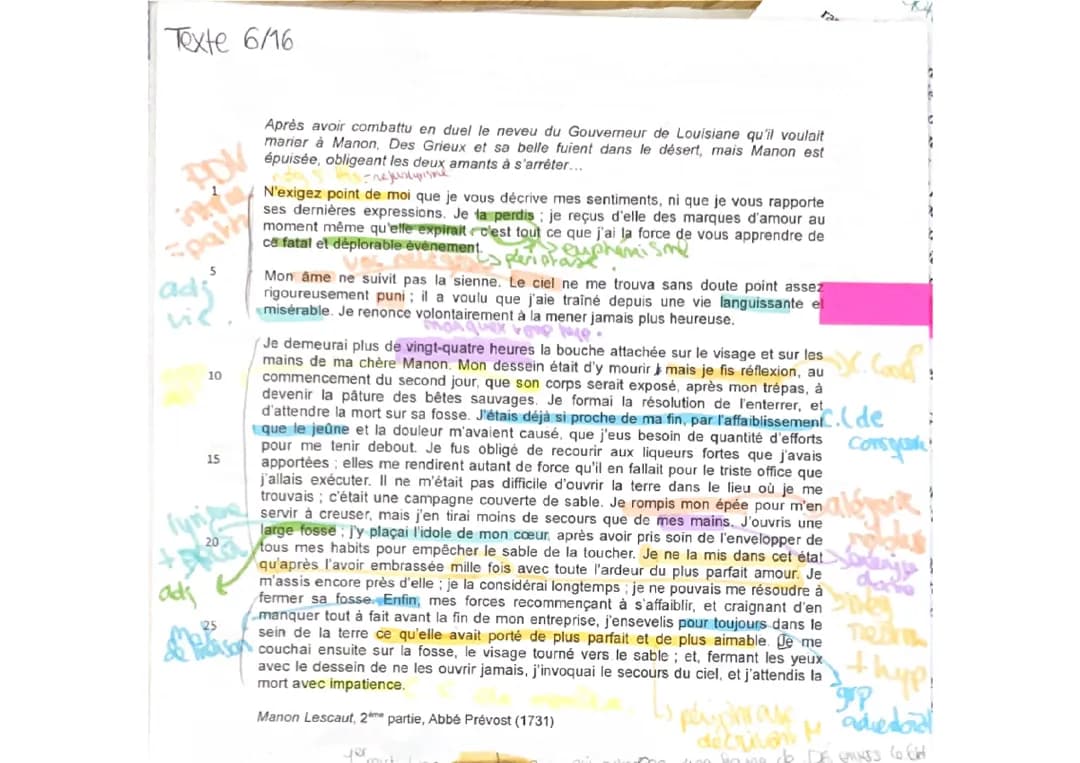 Texte 6/16
Après avoir combattu en duel le neveu du Gouverneur de Louisiane qu'il voulait
marier à Manon, Des Grieux et sa belle fuient dans le désert, mais Manon est
épuisée, obligeant les deux amants à s'arrêter...
PDV
1
N'exigez point de moi que je vous décrive mes sentiments, ni que je vous rapporte
ses dernières expressions. Je la perdis ; je reçus d'elle des marques d'amour au
moment même qu'elle expirait : c'est tout ce que j'ai la force de vous apprendre de
ce fatal et déplorable événement.
euphémisme
périphrase
5
Mon âme ne suivit pas la sienne. Le ciel ne me trouva sans doute point assez
rigoureusement puni ; il a voulu que j'aie traîné depuis une vie languissante et
misérable. Je renonce volontairement à la mener jamais plus heureuse.
adj
vie
Je demeurai plus de vingt-quatre heures la bouche attachée sur le visage et sur les
mains de ma chère Manon. Mon dessein était d'y mourir ; mais je fis réflexion, au
10
commencement du second jour, que son corps serait exposé, après mon trépas, à
devenir la pâture des bêtes sauvages. Je formai la résolution de l'enterrer, et
d'attendre la mort sur sa fosse. J'étais déjà si proche de ma fin, par l'affaiblissement
que le jeûne et la douleur m'avaient causé, que j'eus besoin de quantité d'efforts
pour me tenir debout. Je fus obligé de recourir aux liqueurs fortes que j'avais
15
apportées ; elles me rendirent autant de force qu'il en fallait pour le triste office que
j'allais exécuter. Il ne m'était pas difficile d'ouvrir la terre dans le lieu où je me
trouvais ; c'était une campagne couverte de sable. Je rompis mon épée pour m'en
servir à creuser, mais j'en tirai moins de secours que de mes mains. J'ouvris une
20
large fosse ; j'y plaçai l'idole de mon cœur, après avoir pris soin de l'envelopper de
tous mes habits pour empêcher le sable de la toucher. Je ne la mis dans cet état
qu'après l'avoir embrassée mille fois avec toute l'ardeur du plus parfait amour. Je
m'assis encore près d'elle ; je la considérai longtemps ; je ne pouvais me résoudre à
fermer sa fosse. Enfin, mes forces recommençant à s'affaiblir, et craignant d'en
25
manquer tout à fait avant la fin de mon entreprise, j'ensevelis pour toujours dans le
sein de la terre ce qu'elle avait porté de plus parfait et de plus aimable. Je me
couchai ensuite sur la fosse, le visage tourné vers le sable ; et, fermant les yeux
avec le dessein de ne les ouvrir jamais, j'invoquai le secours du ciel, et j'attendis la
mort avec impatience.
adj
+ hyp
grp
périphrase
Manon Lescaut, 2ème partie, Abbé Prévost (1731)